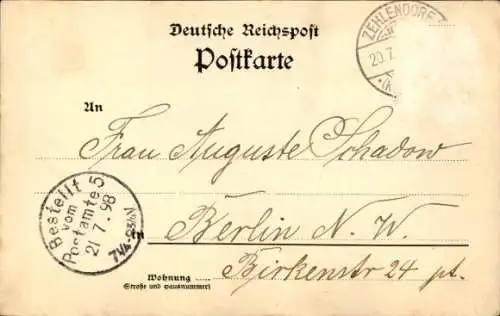 Deutsche Reichspost
Postkarte
ZEHLENDORF
20.7.
*(K
An
Frau Auguste Schadow
Bestellt
vom
Postamte 5
21.7.98
in
Berlin N. W.
Birkenstr 24 pt.
Wohnung
Straße und Hausnummer)